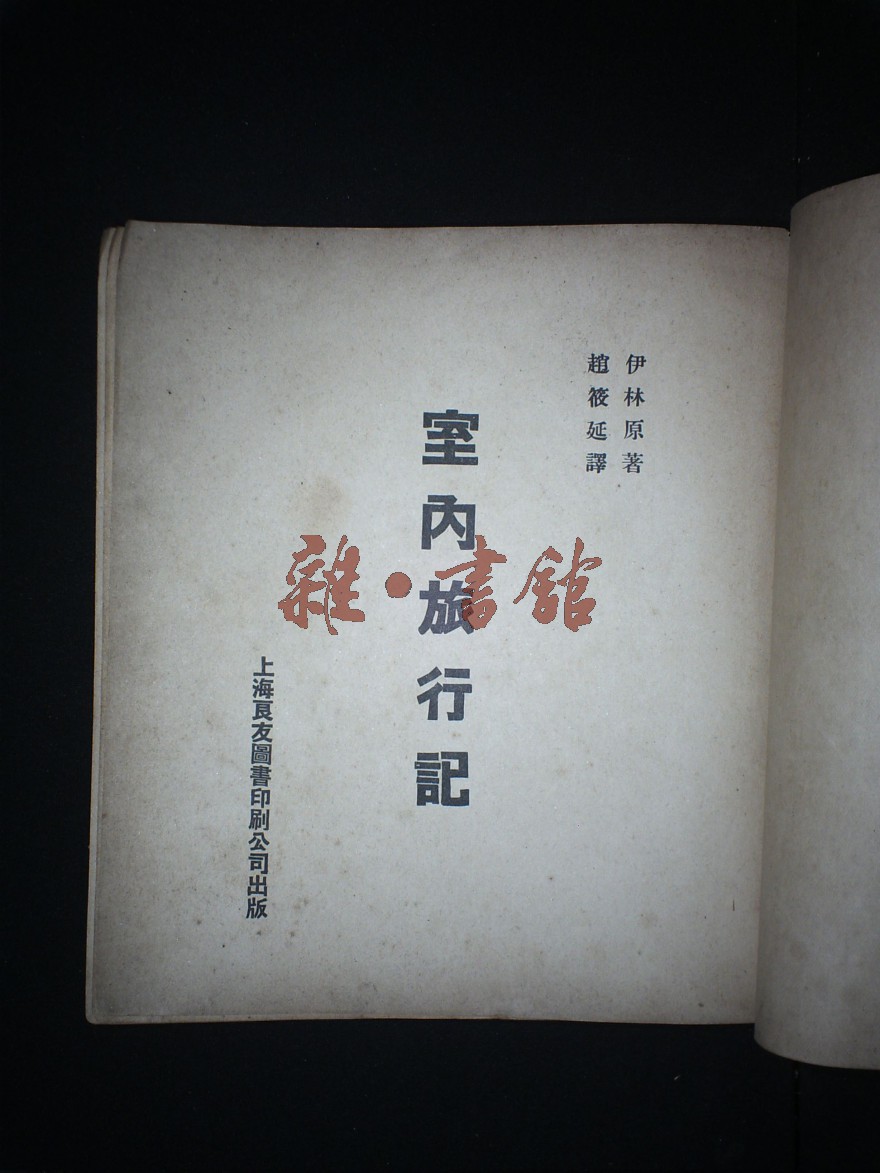 伊林原著
趙筱延譯
室內旅行記
上海良友圖書印刷公司出版
雜·書館